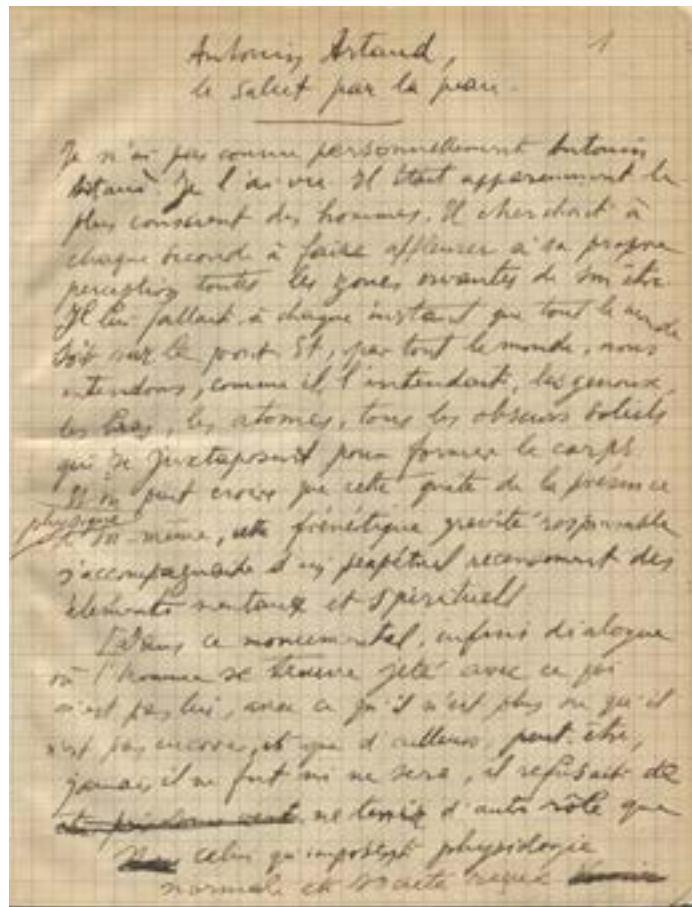 Antonin Artaud, 1
le salut par la peau.
Je n'ai pas connu personnellement Antonin
Artaud. Je l'ai vu. Il était apparemment le
plus conscient des hommes. Il cherchait à
chaque seconde à faire affleurer à sa propre
perception toutes les zones vivantes de son être.
Il lui fallait à chaque instant que tout le monde
soit sur le pont. Et, par tout le monde, nous
entendons, comme il l'entendait, les genoux,
les bras, les atomes, tous les obscurs soleils
qui se juxtaposent pour former le corps.
Et on peut croire que cette quête de la présence
physique
de soi-même, cette frénétique gravité responsable
s'accompagnait d'un perpétuel recensement des
éléments mentaux et spirituels
Dans ce monumental, infini dialogue
où l'homme se trouve jeté avec ce qui
n'est pas lui, avec ce qu'il n'est plus ou qu'il
n'est pas encore, et que d'ailleurs, peut-être,
jamais il ne fut ni ne sera, il refusait de
ne tenir d'autre rôle que
celui qu'imposent physiologie
normale et société reçue